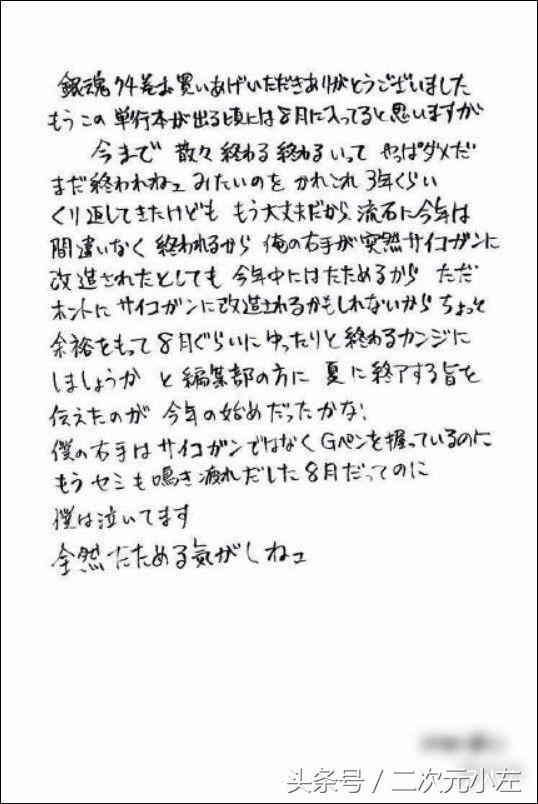 銀魂74巻お買いあげいただきありがとうございました
もうこの単行本が出る頃には8月に入ってると思いますが
今まで散々終わる終わるいってやっぱダメだ
まだ終われねェみたいのをかれこれ3年くらい
くり返してきたけどももう大丈夫だから流石に今年は
間違いなく終われるから俺の右手が突然サイコガンに
改造されたとしても今年中にはたためるからただ
ホントにサイコガンに改造されるかもしれないからちょっと
余裕をもって8月ぐらいにゆったりと終わるカンジに
しましょうかと編集部の方に夏に終了する旨を
伝えたのが今年の始めだったかな!
僕の右手はサイコガンではなくGペンを握っているのに
もうセミも鳴き疲れだした8月だってのに
僕は泣いてます
全然たためる気がしねェ
头条号 / 二次元小左